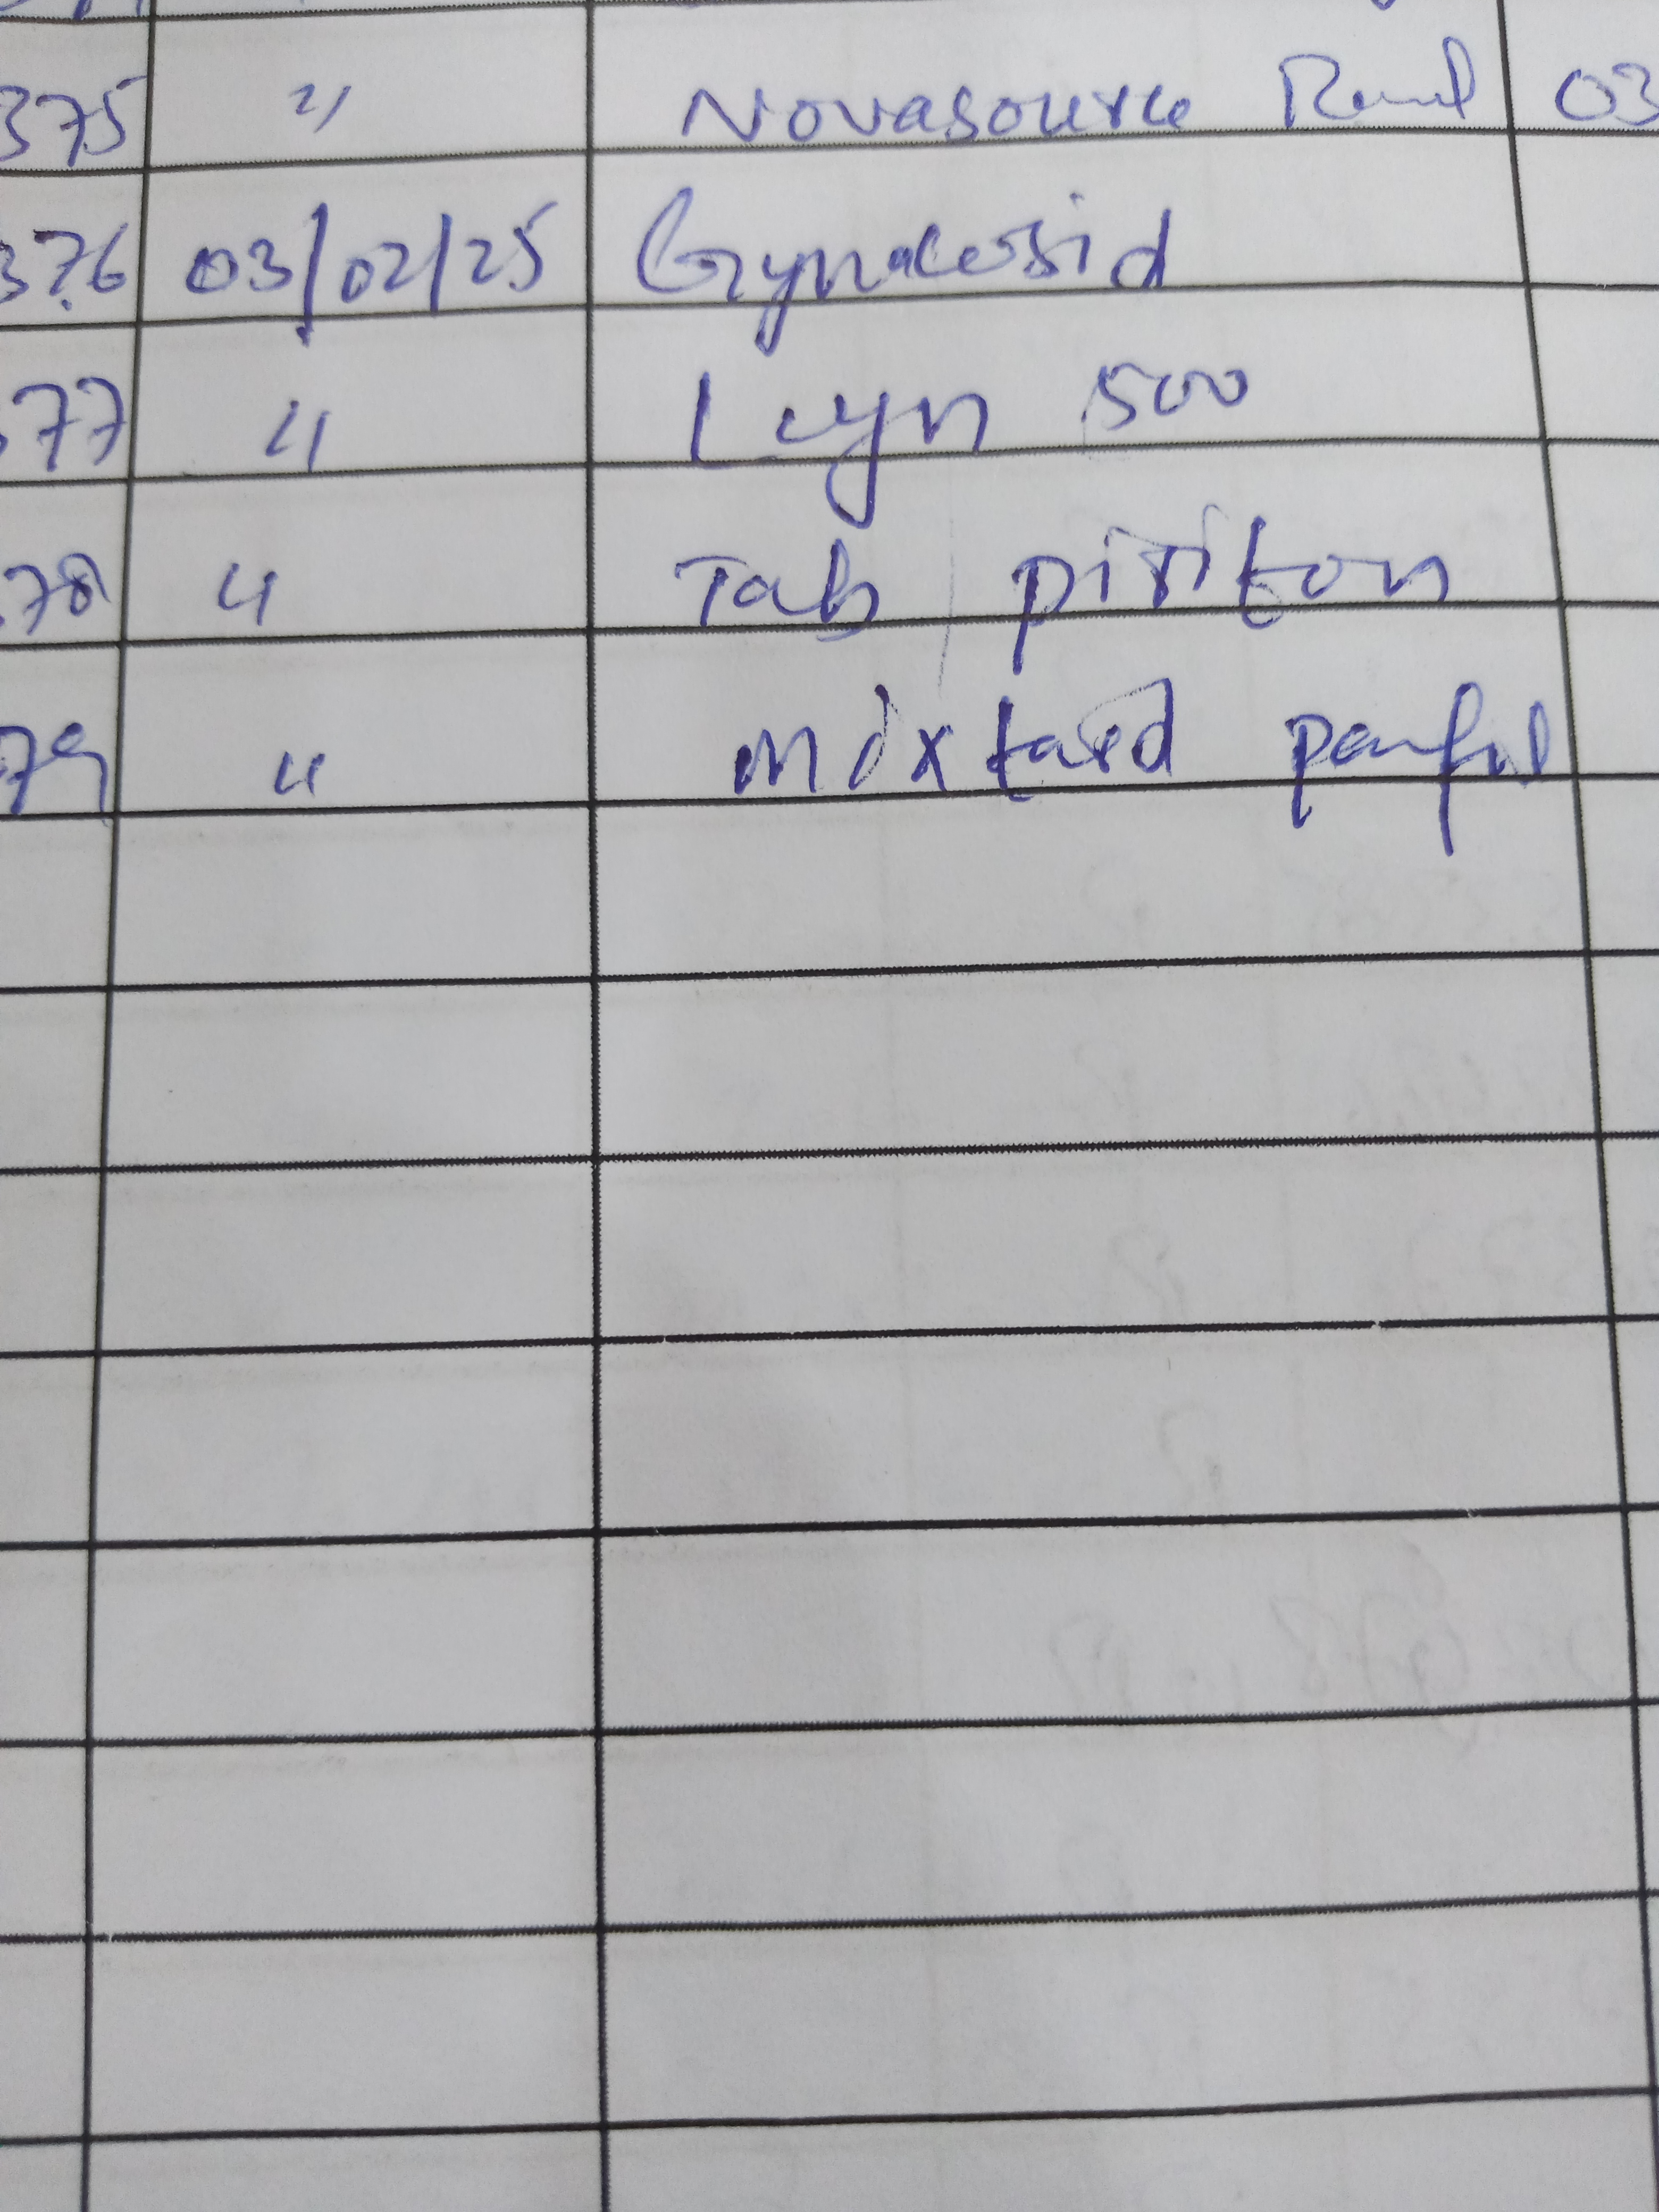 375 " Novasource Renal 03
376 03/02/25 Gynacosid
377 " 500
378 " Tab piriton
79 " Mixtard penfil